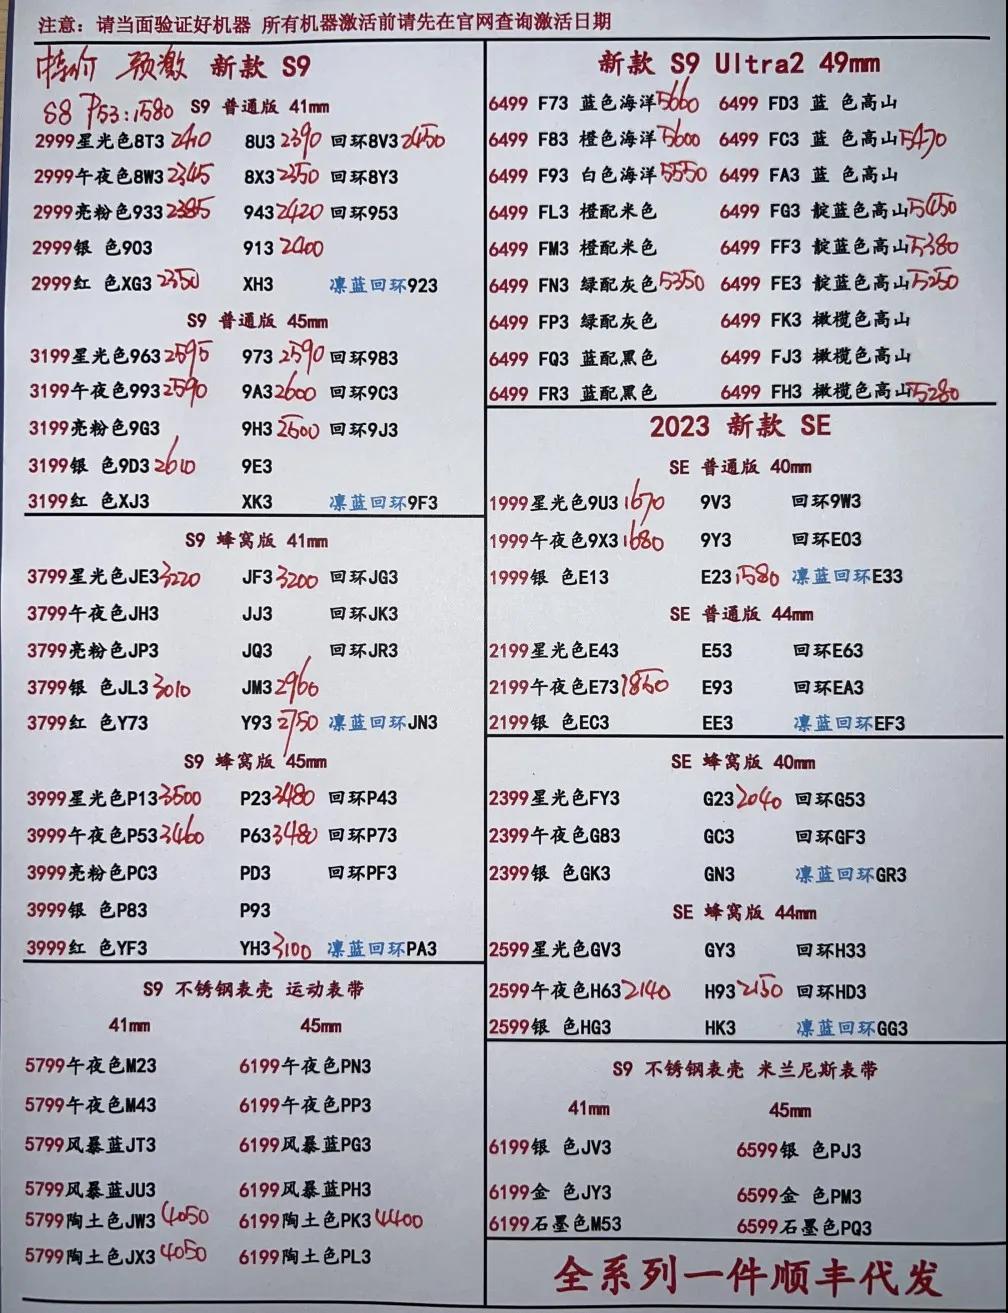 注意：请当面验证好机器 所有机器激活前请先在官网查询激活日期
特价 预激 新款 S9
S8 P53:1580 S9 普通版 41mm
2999星光色8T3 2410 8U3 2390 回环8V3 2450
2999午夜色8W3 2345 8X3 2350 回环8Y3
2999亮粉色933 2385 943 2420 回环953
2999银 色903 913 2400
2999红 色XG3 2350 XH3 凛蓝回环923
S9 普通版 45mm
3199星光色963 2595 973 2590 回环983
3199午夜色993 2590 9A3 2600 回环9C3
3199亮粉色9G3 9H3 2600 回环9J3
3199银 色9D3 2610 9E3
3199红 色XJ3 XK3 凛蓝回环9F3
S9 蜂窝版 41mm
3799星光色JE3 3220 JF3 3200 回环JG3
3799午夜色JH3 JJ3 回环JK3
3799亮粉色JP3 JQ3 回环JR3
3799银 色JL3 3010 JM3 2960
3799红 色Y73 Y93 2750 凛蓝回环JN3
S9 蜂窝版 45mm
3999星光色P13 3500 P23 3480 回环P43
3999午夜色P53 3460 P63 3480 回环P73
3999亮粉色PC3 PD3 回环PF3
3999银 色P83 P93
3999红 色YF3 YH3 3100 凛蓝回环PA3
S9 不锈钢表壳 运动表带
41mm 45mm
5799午夜色M23 6199午夜色PN3
5799午夜色M43 6199午夜色PP3
5799风暴蓝JT3 6199风暴蓝PG3
5799风暴蓝JU3 6199风暴蓝PH3
5799陶土色JW3 4050 6199陶土色PK3 4400
5799陶土色JX3 4050 6199陶土色PL3
新款 S9 Ultra2 49mm
6499 F73 蓝色海洋 5660 6499 FD3 蓝 色高山
6499 F83 橙色海洋 5600 6499 FC3 蓝 色高山 5470
6499 F93 白色海洋 5550 6499 FA3 蓝 色高山
6499 FL3 橙配米色 6499 FG3 靛蓝色高山 5450
6499 FM3 橙配米色 6499 FF3 靛蓝色高山 5380
6499 FN3 绿配灰色 5350 6499 FE3 靛蓝色高山 5250
6499 FP3 绿配灰色 6499 FK3 橄榄色高山
6499 FQ3 蓝配黑色 6499 FJ3 橄榄色高山
6499 FR3 蓝配黑色 6499 FH3 橄榄色高山 5280
2023 新款 SE
SE 普通版 40mm
1999星光色9U3 1670 9V3 回环9W3
1999午夜色9X3 1680 9Y3 回环E03
1999银 色E13 E23 1580 凛蓝回环E33
SE 普通版 44mm
2199星光色E43 E53 回环E63
2199午夜色E73 1860 E93 回环EA3
2199银 色EC3 EE3 凛蓝回环EF3
SE 蜂窝版 40mm
2399星光色FY3 G23 2040 回环G53
2399午夜色G83 GC3 回环GF3
2399银 色GK3 GN3 凛蓝回环GR3
SE 蜂窝版 44mm
2599星光色GV3 GY3 回环H33
2599午夜色H63 2140 H93 2150 回环HD3
2599银 色HG3 HK3 凛蓝回环GG3
S9 不锈钢表壳 米兰尼斯表带
41mm 45mm
6199银 色JV3 6599银 色PJ3
6199金 色JY3 6599金 色PM3
6199石墨色M53 6599石墨色PQ3
全系列一件顺丰代发